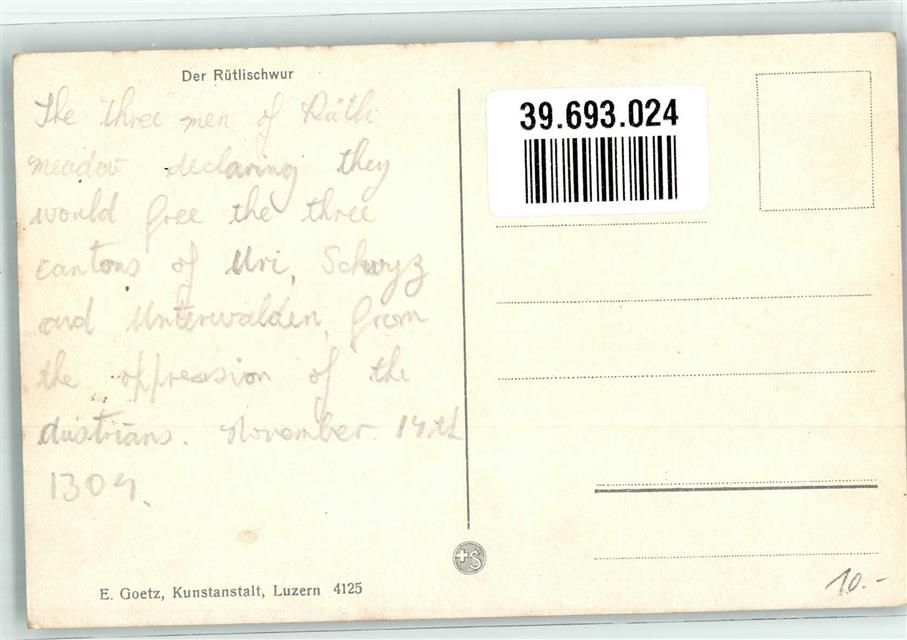 Der Rütlischwur
The three men of Rütli
meadow declaring they
would free the three
cantons of Uri, Schwyz
and Unterwalden, from
the oppression of the
Austrians. November 14th
1307.
39.693.024
+S
E. Goetz, Kunstanstalt, Luzern 4125
10.-